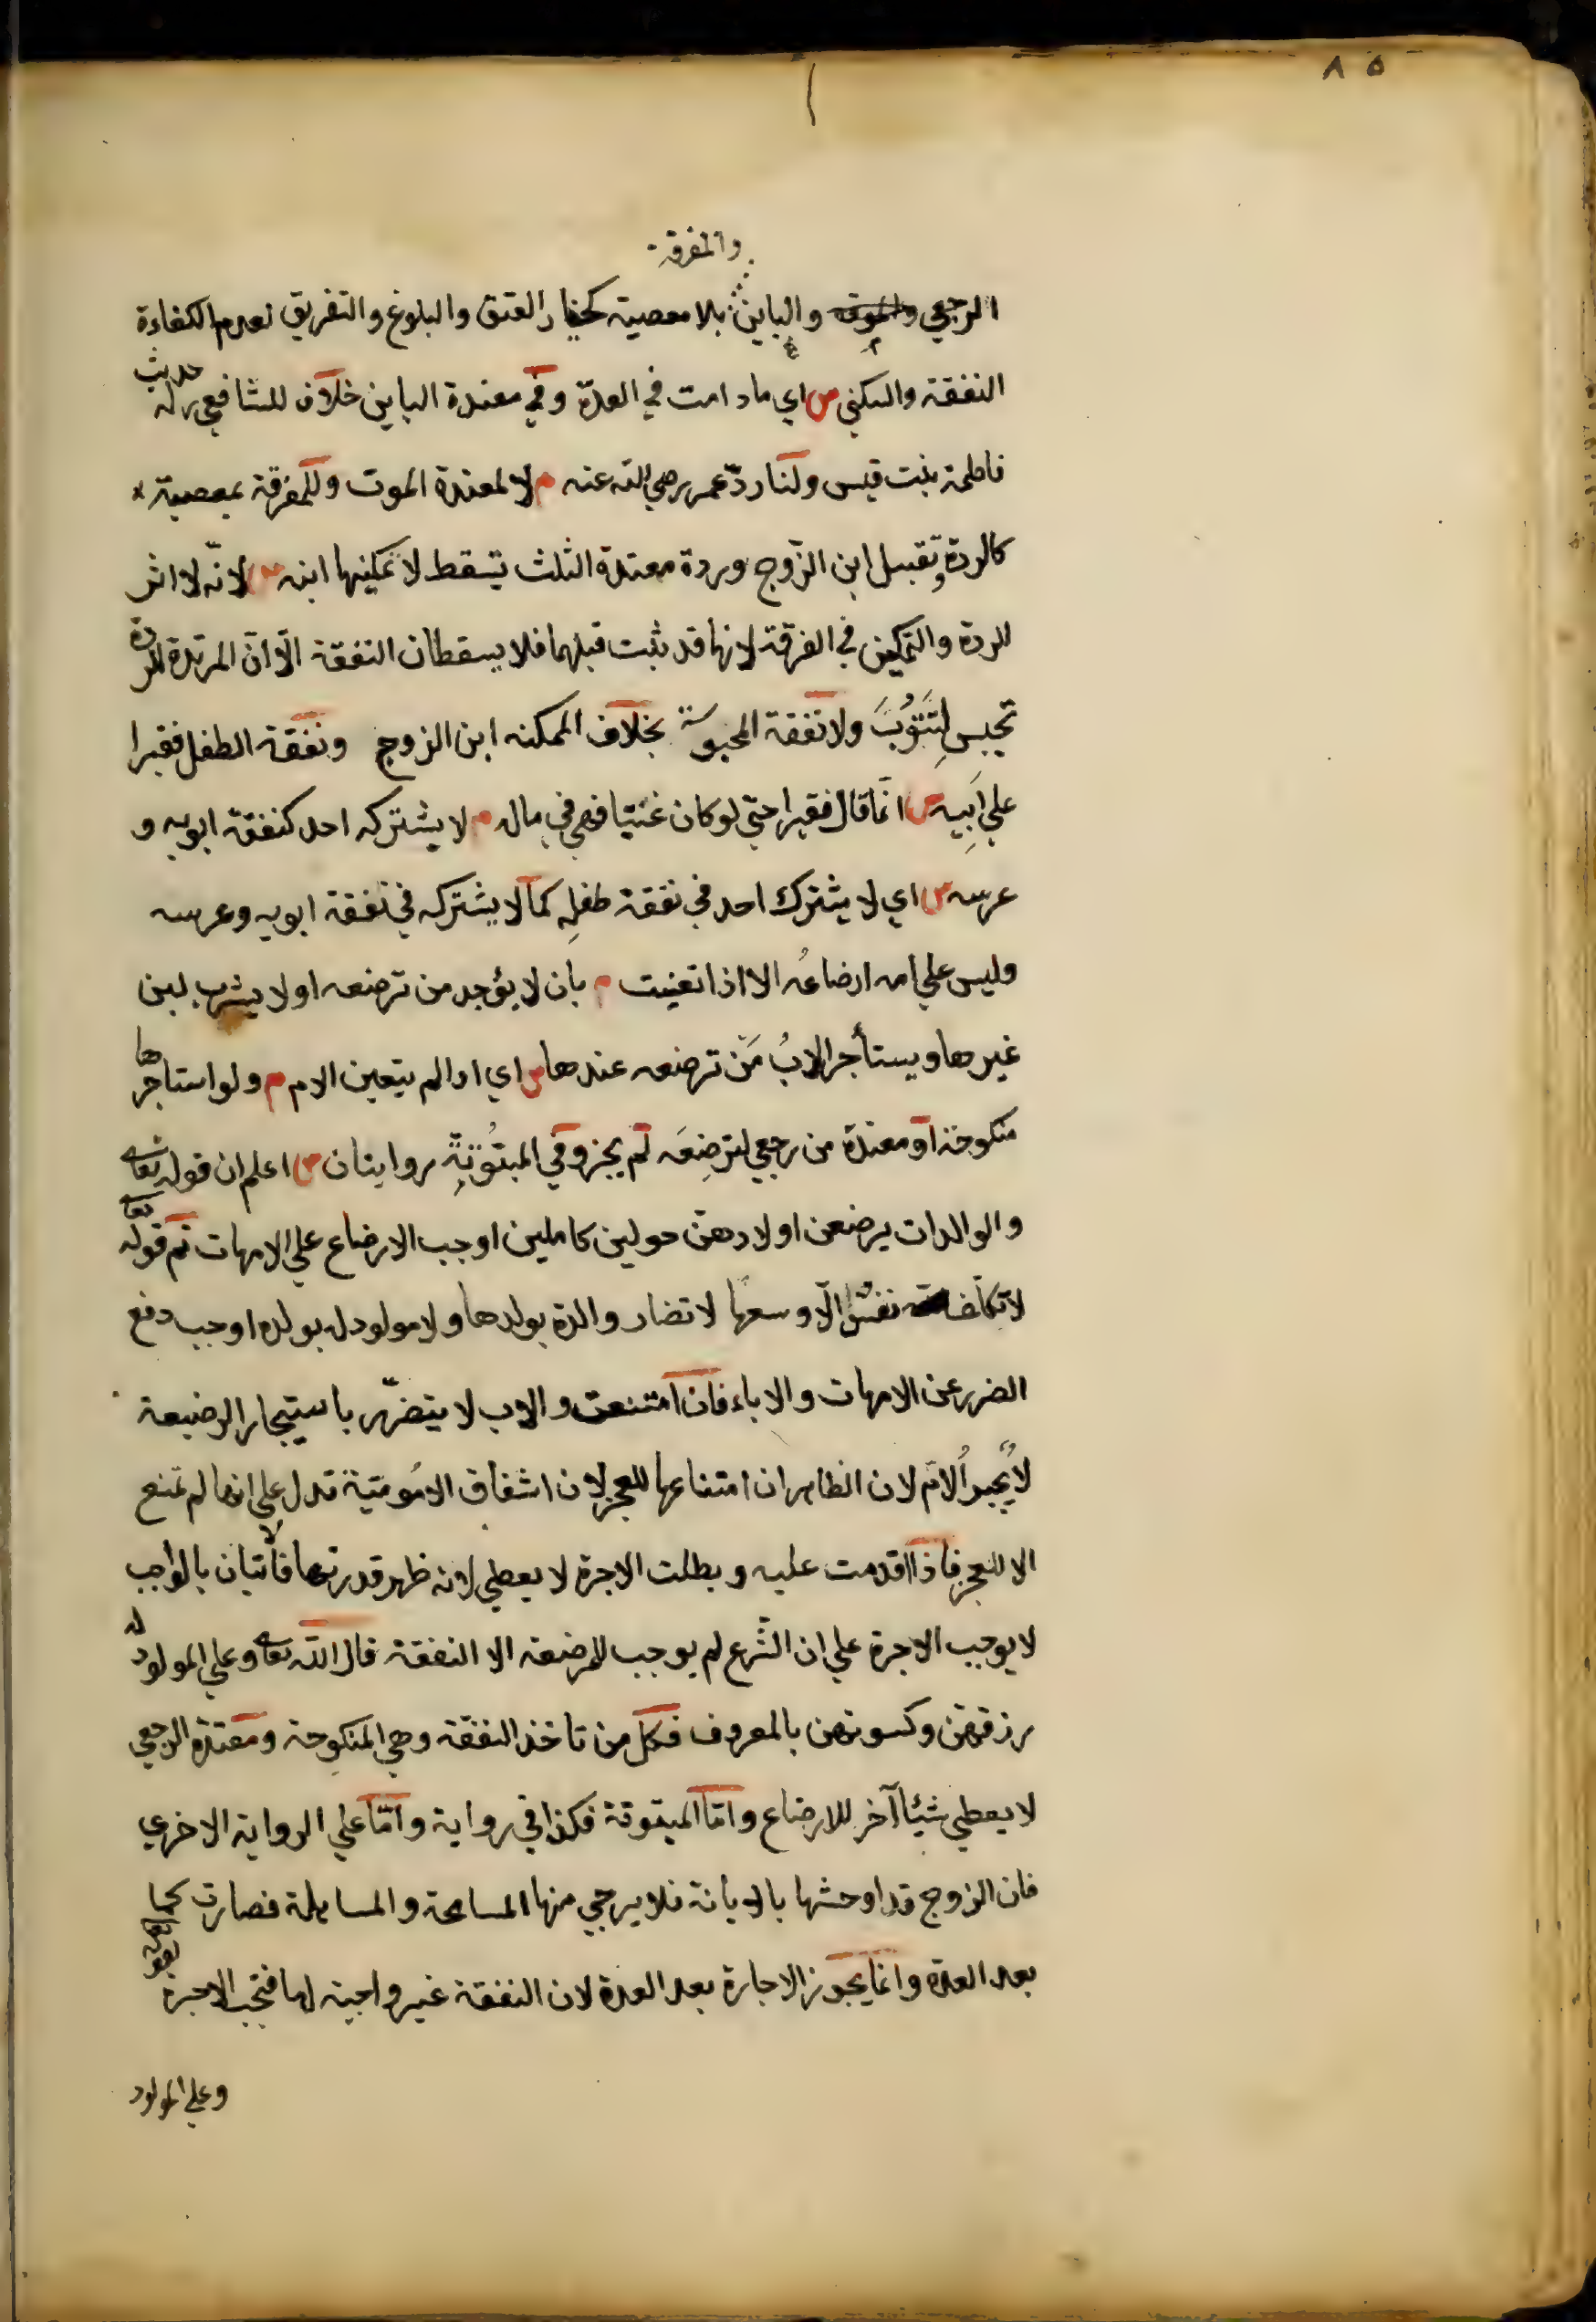 ٨٥
والمفرقة
الرجعي والباين بلا معصية كخيار العتق والبلوغ والتفريق لعدم الكفاءة
النفقة والسكني ص اي ما دامت في العدة وفي معتدة الباين خلاف للشافعي له حديث
فاطمة بنت قيس ولنا ردّ عمر رضي الله عنه م لا لمعتدة الموت وللمفرقة بمعصية
كالردة وتقبيل ابن الزوج وردة معتدة الثلث تسقط لا تمكينها ابنه ص لانّه لا اثر
للردة والتمكين في الفرقة لانها قد ثبت قبلهما فلا يسقطان النفقة الّا انّ المرتدة
تحبس لِتَتُوبَ ولا نفقة المحبوسة بخلاف الممكنه ابن الزوج ونفقة الطفل فقيرا
علي اَبِيه ص انّما قال فقيرا حتي لو كان غنيّا فهي في ماله م لا يشتركه احد كنفقة ابويه و
عرسه ص اي لا يشترك احد في نفقة طفلِه كما لا يشتركه في نفقة ابويه وعرسه
وليس علي امه ارضاعُه الا اذا تعينت م بان لا يؤجد من ترضعه او لا يشرب لبن
غيرها ويستأجر الابُ مَن ترضعه عندها ص اي اذا لم يتعين الام م ولو استاجرها
منكوحة او معتدة من رجعي لترضِعَه لم يجز وفي المبتُوتَةِ روايتان ص اعلم ان قوله تعالي
والوالدات يرضعن اولادهنّ حولين كاملين اوجب الارضاع علي الامهات ثم قوله تعالي
لا تكلف نفسٌ الّا وسعها لا تضار والدة بولدها ولا مولود له بولده اوجب دفع
الضرر عن الامهات والاباء فان امتنعت والاب لا يتضرّر باستيجار المرضعة
لا يُجبرُ الامّ لان الظاهر ان امتناعها للعجز لان اشفاق الامُومَيّة تدل علي انها لم تمنع
الا للعجز فاذا اقدمت عليه وبطلت الاجرة لا يعطي لانه ظهر قدرتها فالاتيان بالواجب
لا يوجب الاجرة علي ان الشرع لم يوجب للمرضعة الا النفقة قال الله تعالي وعلي المولود له
رزقهن وكسوتهن بالمعروف فكل من تاخذ النفقة وهي المنكوحة ومعتدة الرجعي
لا يعطي شيئا آخر للارضاع وامّا المبتوتة فكذا في رواية وامّا علي الرواية الاخري
فان الزوج قد اوحشها بالابانة فلا يرجي منها المسامحة والمساهلة فصارت كما
بعد العدة وانما يجوز الاجارة بعد العدة لان النفقة غير واجبة لها فتجب الاجرة
وعلي المولود